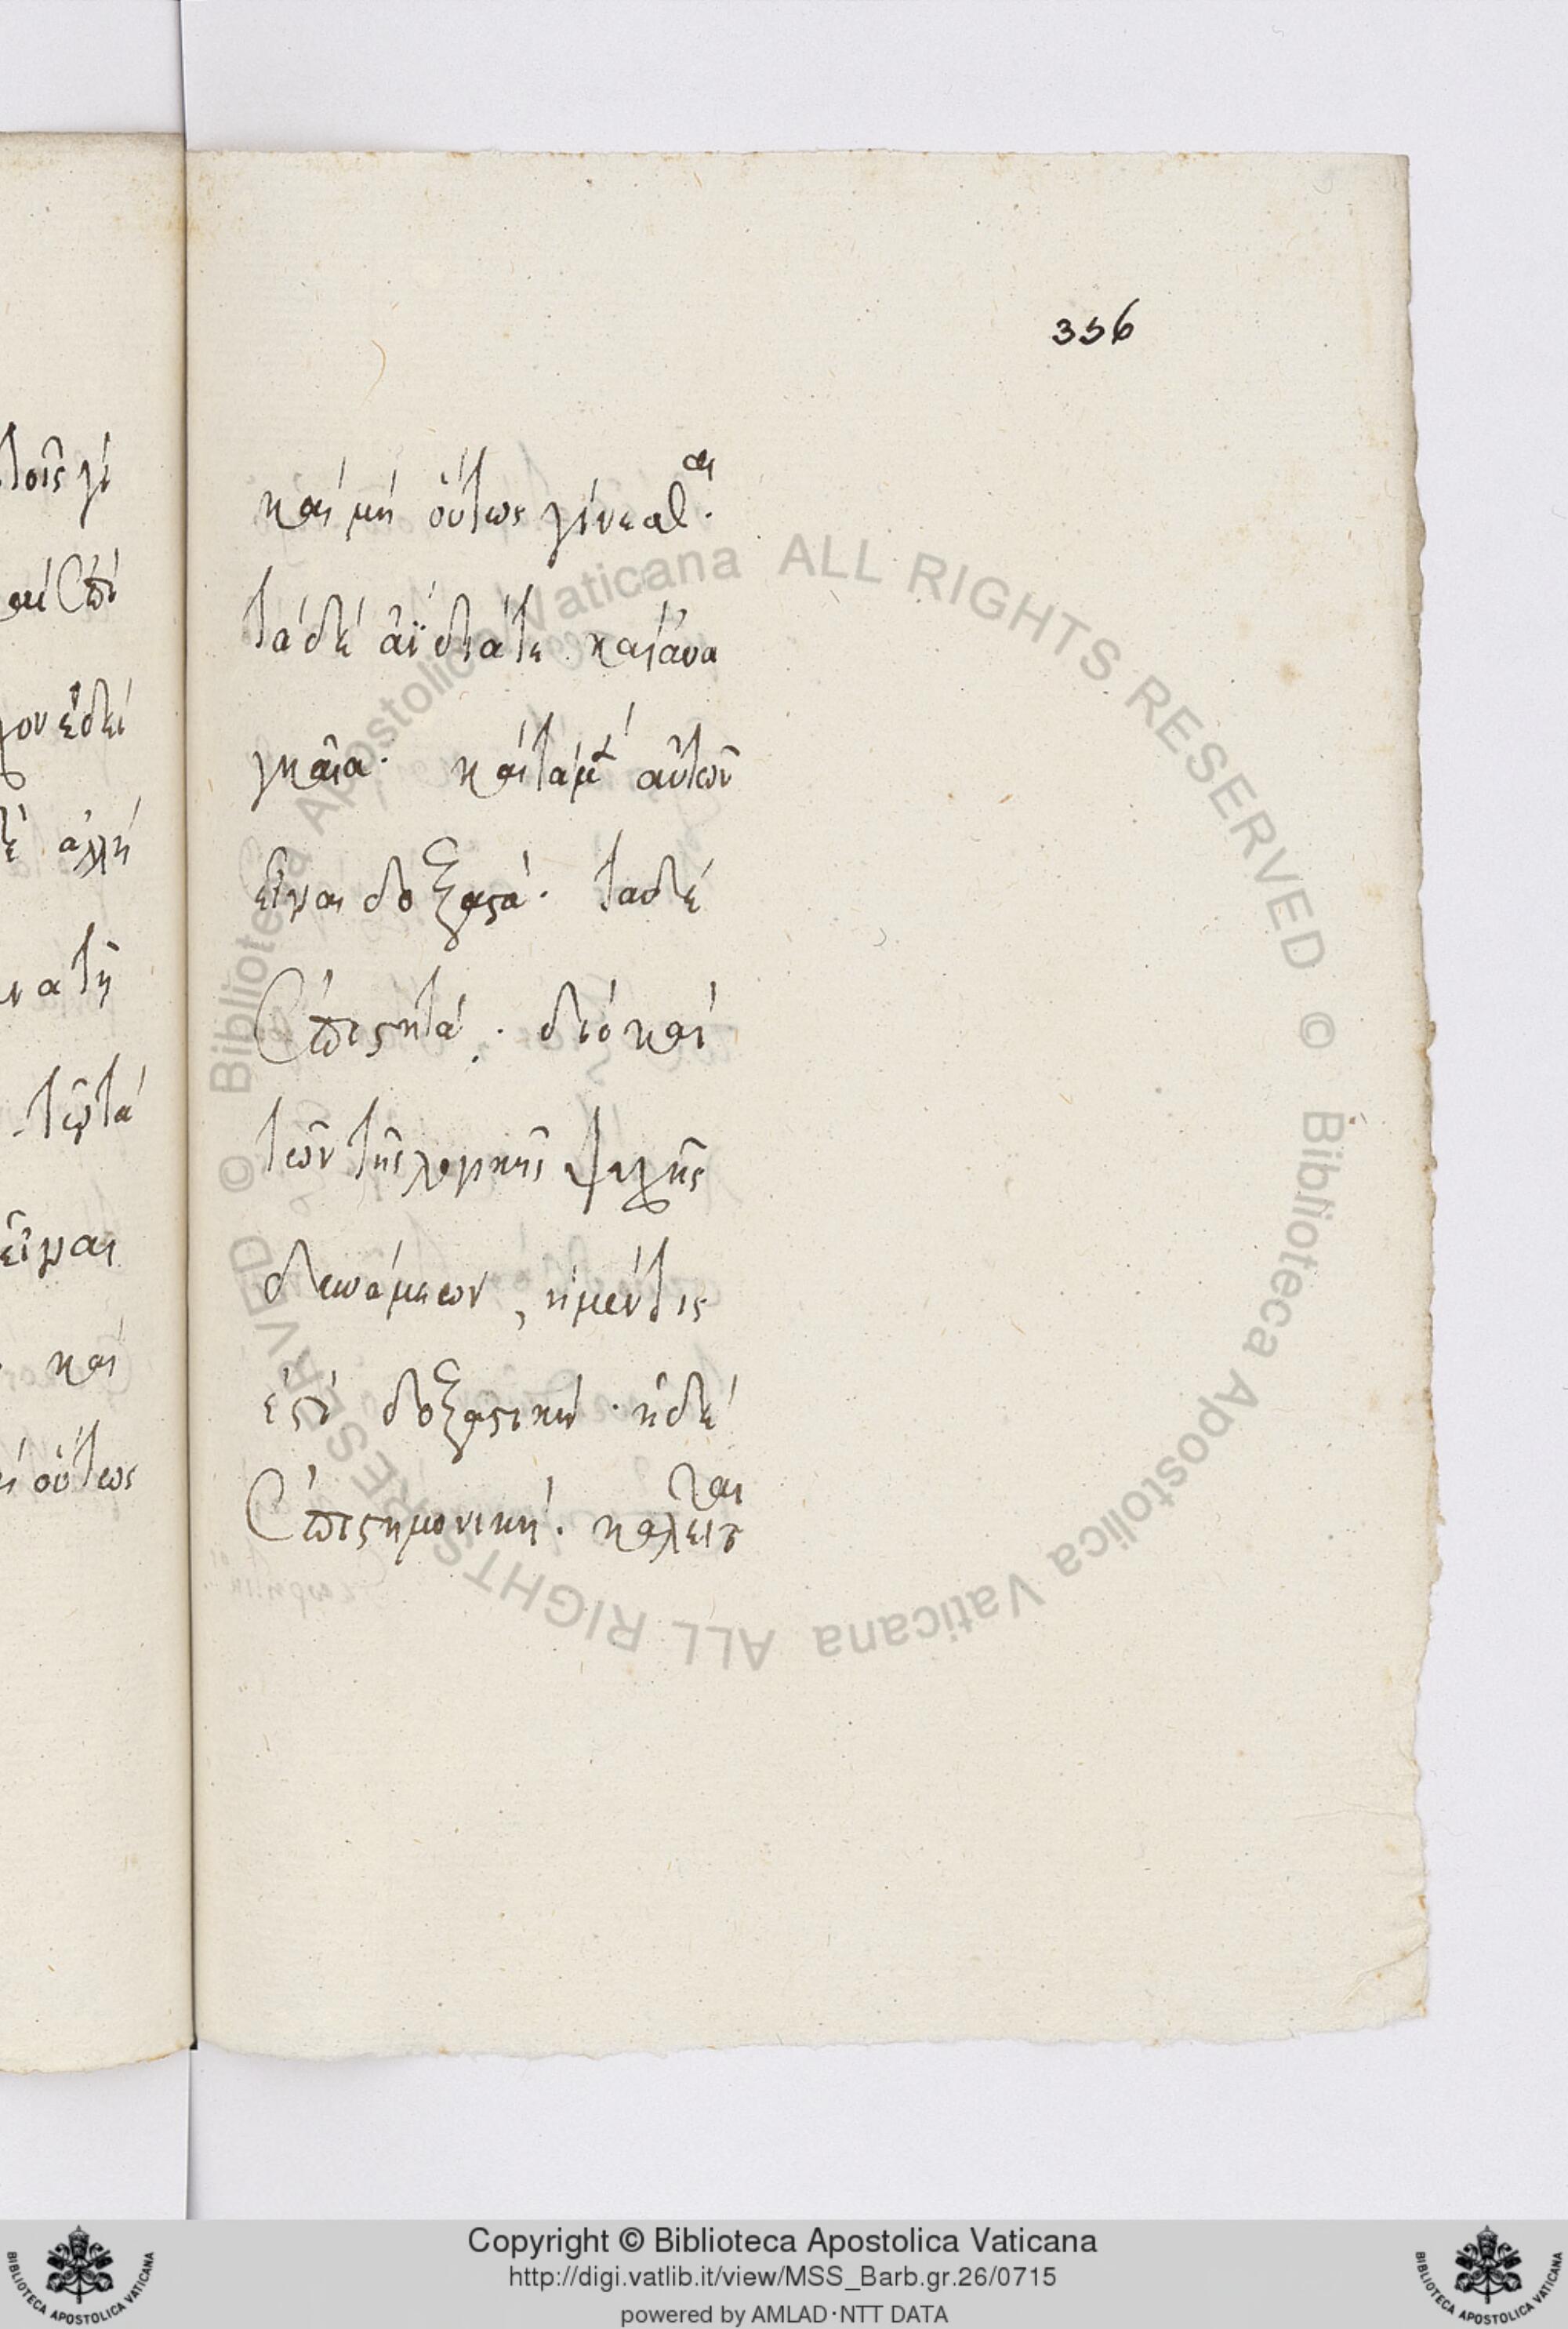 356
τοῖς γὶ
καὶ μὴ οὕτως γίνεσθαι.
τὰ δὲ ἀΐδιά τε καὶ ἀνα
γκαῖα. καὶ τὰ μὲν αὐτῶν
εἶναι δοξαστά. τὰ δὲ
ἐπιστητά. διὸ καὶ
τῶν τῆς λογικῆς ψυχῆς
δυνάμεων, ἡ μέν τις
ἐστὶ δοξαστικὴ. ἡ δὲ
ἐπιστημονική. καλεῖται
εἶναι
καὶ
οὕτως
© Biblioteca Apostolica Vaticana ALL RIGHTS RESERVED © Biblioteca Apostolica Vaticana ALL RIGHTS RESERVED
Copyright © Biblioteca Apostolica Vaticana
http://digi.vatlib.it/view/MSS_Barb.gr.26/0715
powered by AMLAD·NTT DATA
BIBLIOTECA APOSTOLICA VATICANA
BIBLIOTECA APOSTOLICA VATICANA